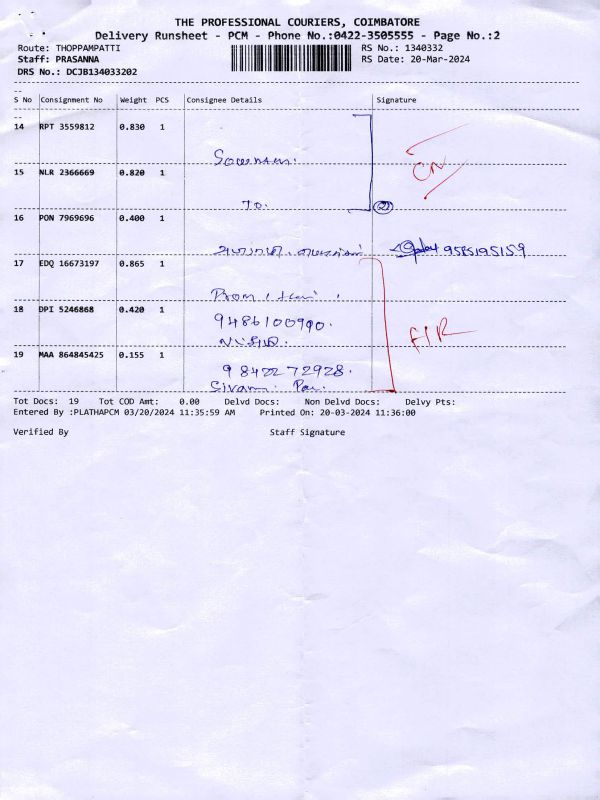 THE PROFESSIONAL COURIERS, COIMBATORE
Delivery Runsheet - PCM - Phone No.:0422-3505555 - Page No.:2
Route: THOPPAMPATTI RS No.: 1340332
Staff: PRASANNA RS Date: 20-Mar-2024
DRS No.: DCJB134033202
S No Consignment No Weight PCS Consignee Details Signature
14 RPT 3559812 0.830 1
15 NLR 2366669 0.820 1
TO.
16 PON 7969696 0.400 1
9585195159
17 EDQ 16673197 0.865 1
18 DPI 5246868 0.420 1
9486100990.
19 MAA 864845425 0.155 1
9842272928.
Tot Docs: 19 Tot COD Amt: 0.00 Delvd Docs: Non Delvd Docs: Delvy Pts:
Entered By :PLATHAPCM 03/20/2024 11:35:59 AM Printed On: 20-03-2024 11:36:00
Verified By Staff Signature